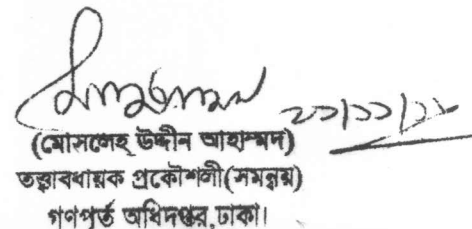 ২১/১১/২১
(মোসলেহ্ উদ্দীন আহাম্মদ)
তত্ত্বাবধায়ক প্রকৌশলী(সমন্বয়)
গণপূর্ত অধিদপ্তর,ঢাকা।